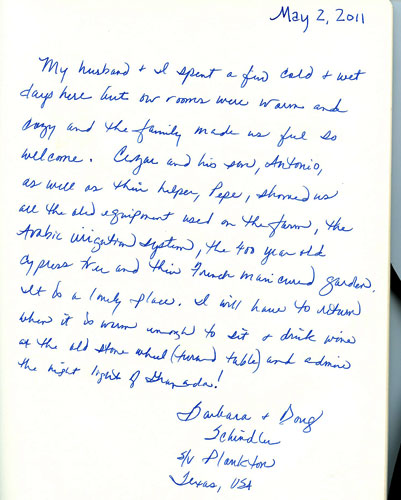 May 2, 2011
My husband & I spent a few cold & wet
days here but our rooms were warm and
cozy and the family made us feel so
welcome. Cezar and his son, Antonio,
as well as their helper, Pepe, showed us
all the old equipment used on the farm, the
Arabic irrigation system, the 400 year old
cypress tree and their French manicured garden.
It is a lovely place. I will have to return
when it is warm enough to sit & drink wine
at the old stone wheel (turned table) and admire
the night lights of Granada!
Barbara & Doug
Schindler
s/v Plankton
Texas, USA